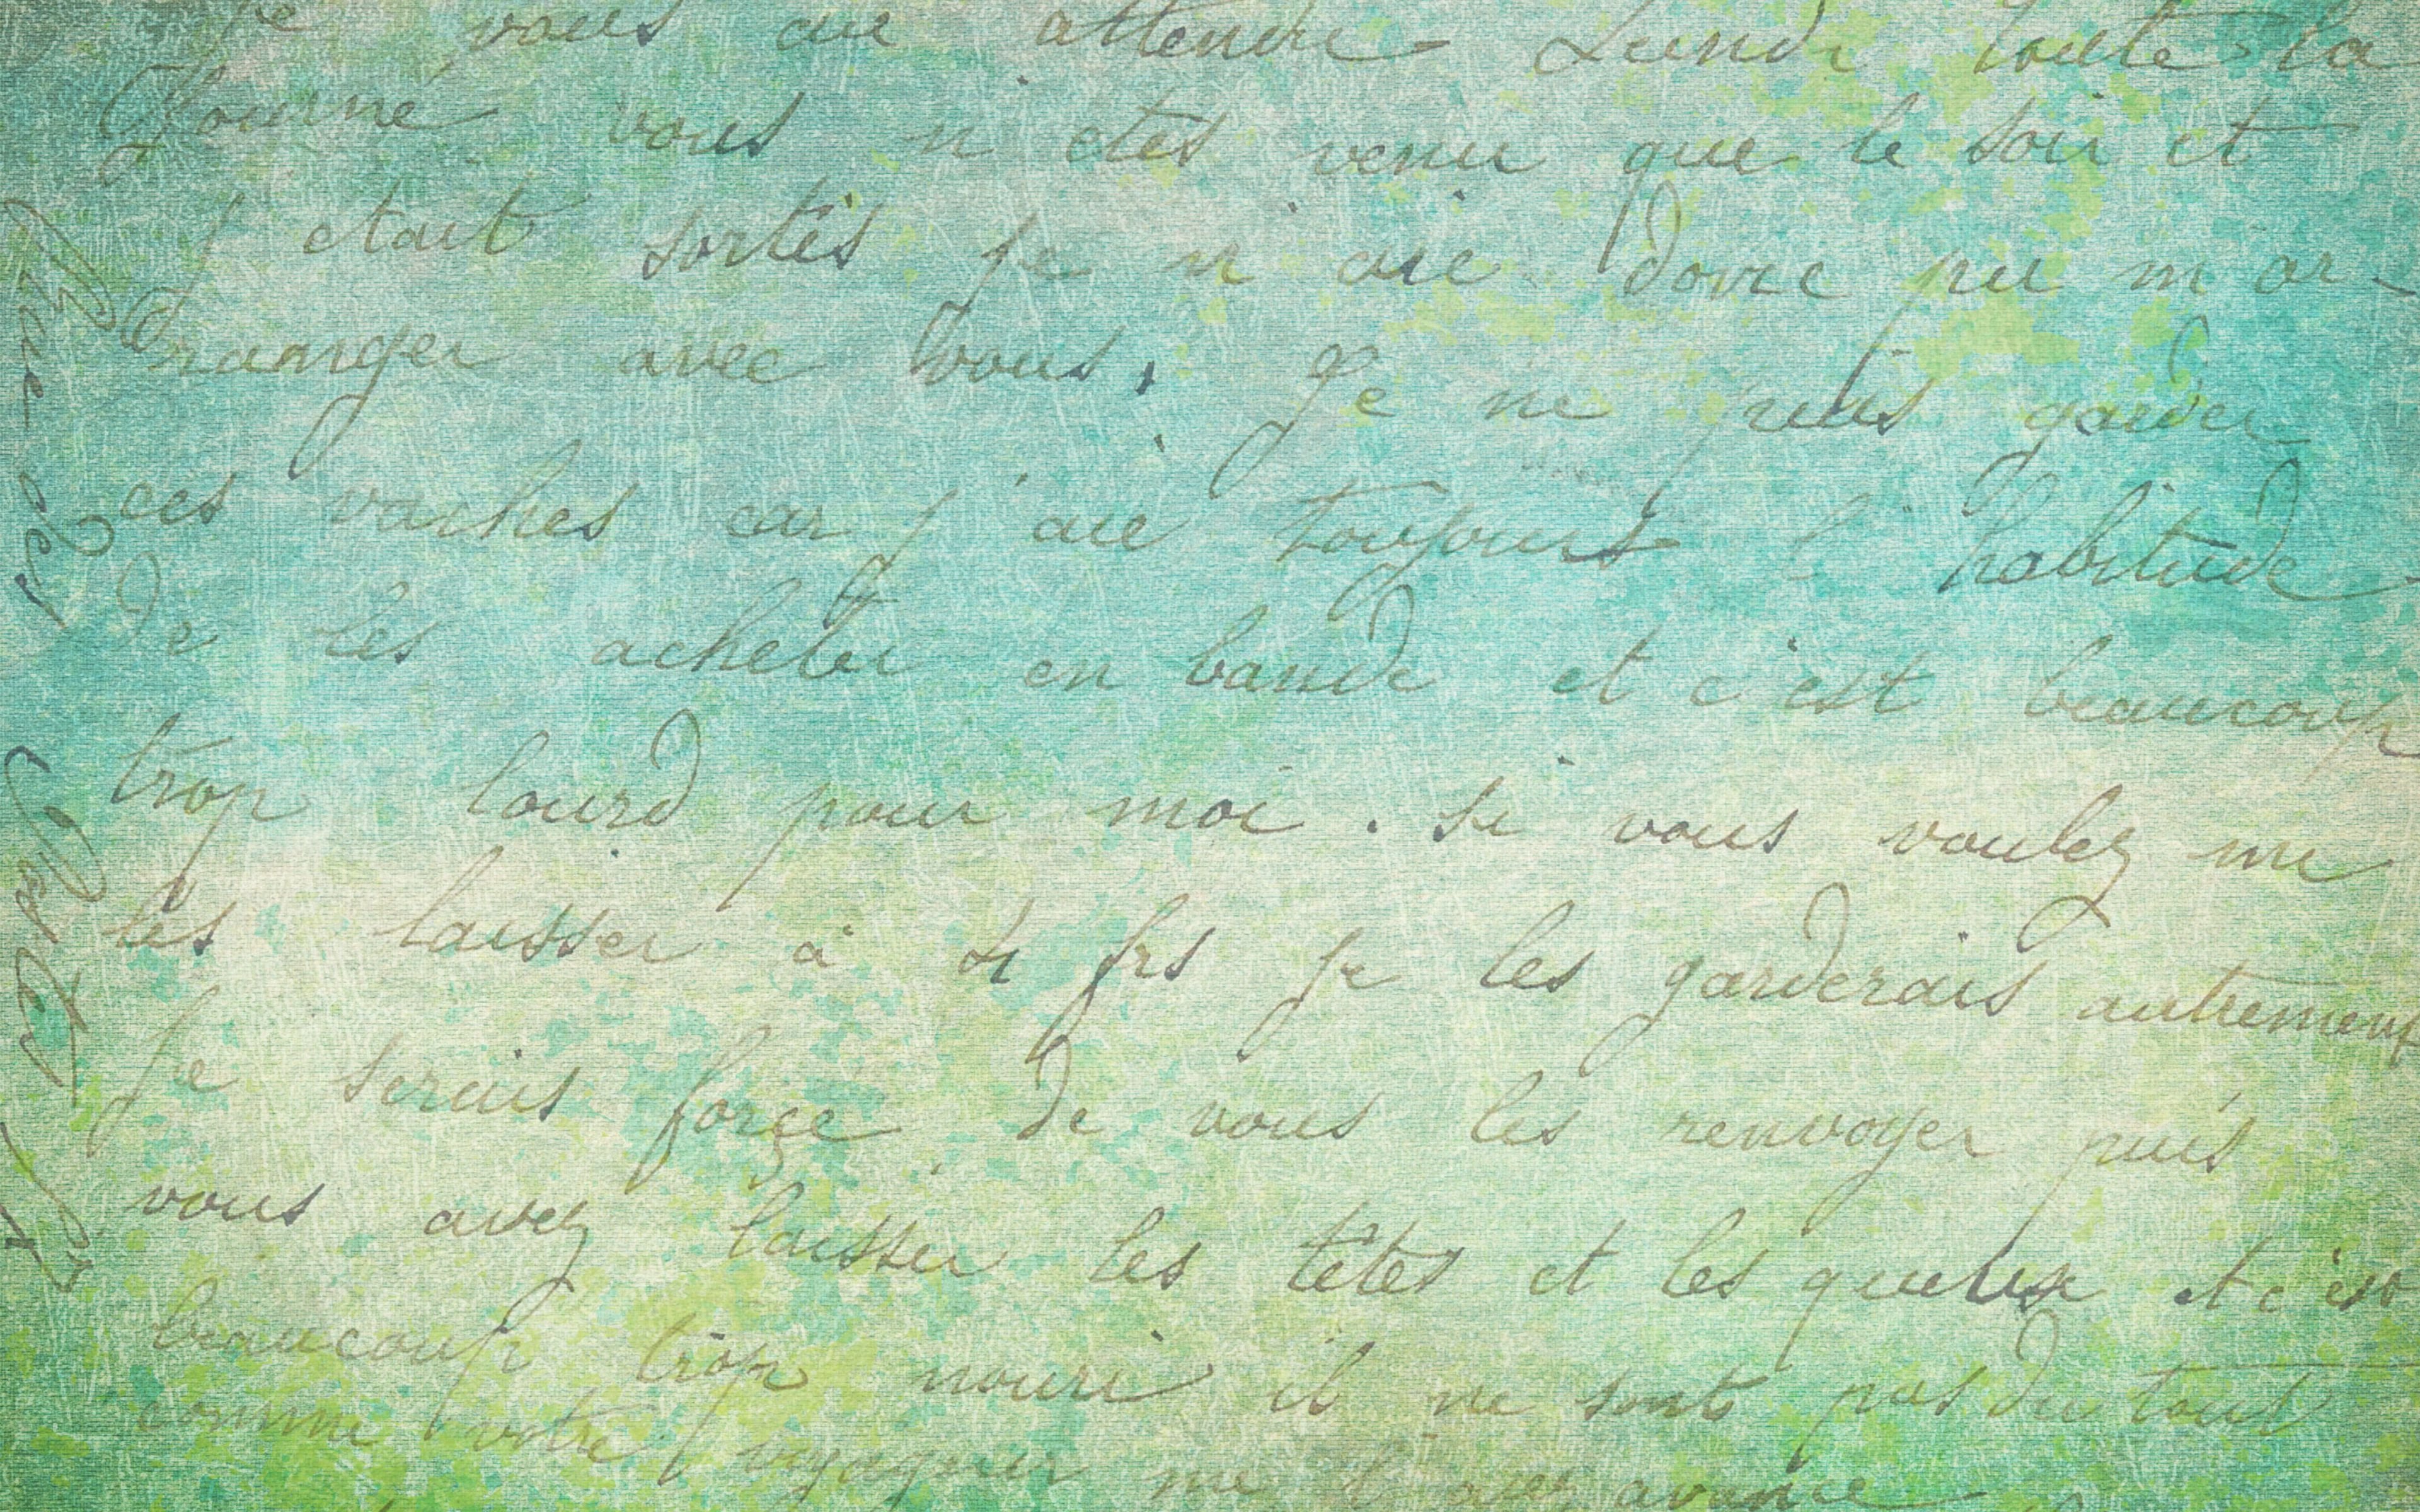 Je vous aie attendu Lundi toute la
Journé vous n'etes venu que le soir et
j'etait sortis je n'aie donc pu m'ar-
ranger avec vous. Je ne puis garder
ces vaches car j'aie toujours l'habitude
de les acheter en bande et c'est beaucoup
trop lourd pour moi. si vous voulez me
les laisser à frs je les garderais autrement
Je serais forçé de vous les renvoyer puis
vous avez laisser les têtes et les queux et c'est
beaucoup trop nouri il ne sont pas du tout
comme votre voyageur me l'
Rue des
Postes